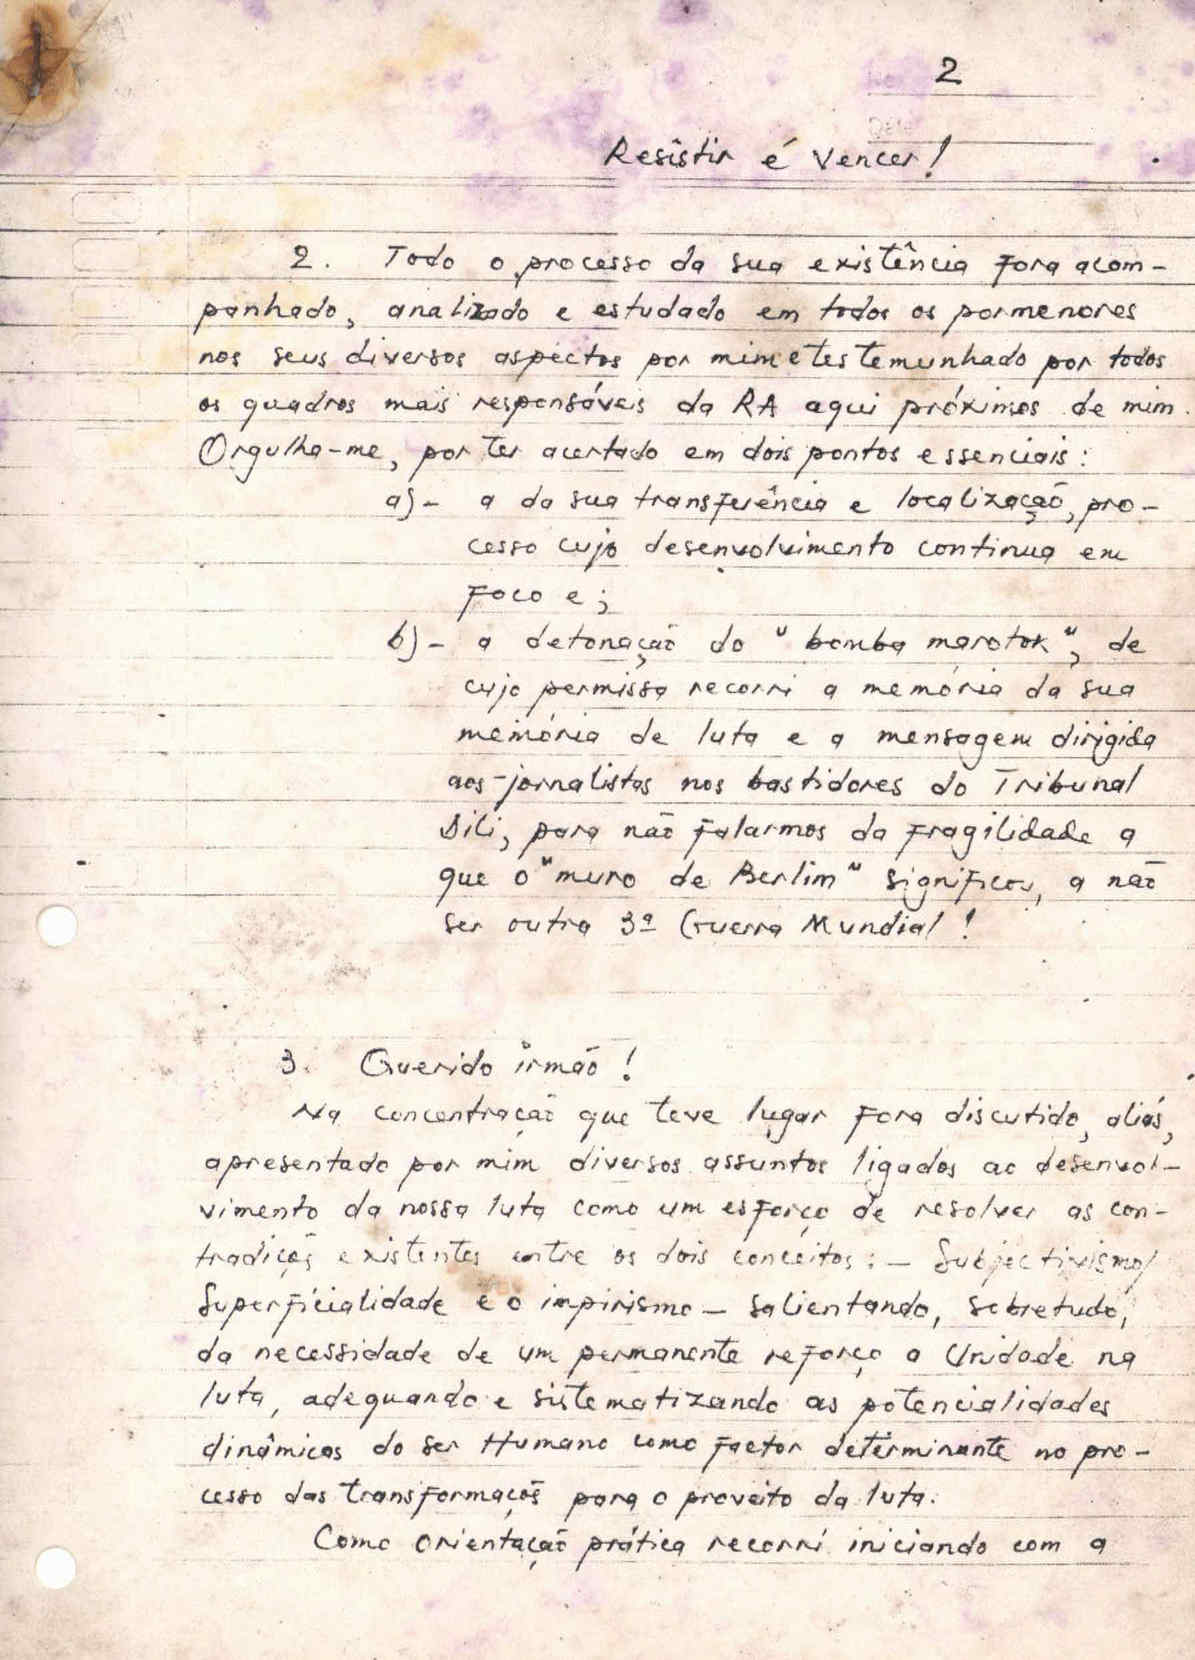 2
Resistir é Vencer!
2. Todo o processo da sua existência fora acom-
panhado, analizado e estudado em todos os pormenores
nos seus diversos aspectos por mim e testemunhado por todos
os quadros mais responsáveis da RA aqui próximos de mim.
Orgulho-me, por ter acertado em dois pontos essenciais:
a)- a da sua transferência e localização, pro-
cesso cujo desenvolvimento continua em
foco e;
b)- a detonação do "bomba marotok", de
cujo permissa recorri a memória da sua
memória de luta e a mensagem dirigida
aos jornalistas nos bastidores do Tribunal
Dili, para não falarmos da fragilidade a
que o "muro de Berlim" significou, a não
ser outra 3ª Guerra Mundial!
3. Querido irmão!
Na concentração que teve lugar fora discutido, aliás,
apresentado por mim diversos assuntos ligados ao desenvol-
vimento da nossa luta como um esforço de resolver as con-
tradiçõs existentes entre os dois conceitos: - Subjectivismo/
Superficialidade e o impirismo - salientando, sobretudo,
da necessidade de um permanente reforço a Unidade na
luta, adequando e sistematizando as potencialidades
dinâmicas do ser Humano como factor determinante no pro-
cesso das transformaçõs para o proveito da luta.
Como orientação prática recorri iniciando com a